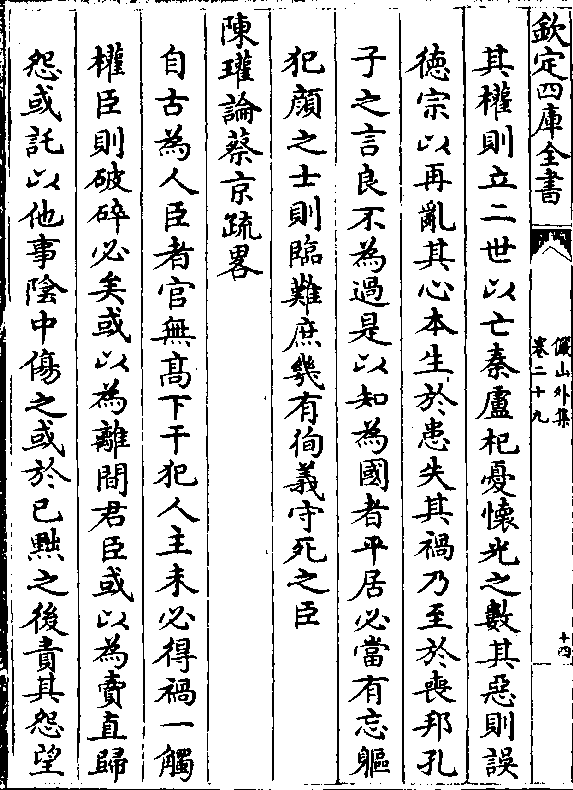 欽定四庫全書
儼山外集
卷二十九
十四
其權則立二世以亡秦盧杞憂懷光之數其惡則誤
徳宗以再亂其心本生於患失其禍乃至於喪邦孔
子之言良不為過是以知為國者平居必當有忘軀
犯顔之士則臨難庶幾有徇義守死之臣
陳瓘論蔡京疏畧
自古為人臣者官無髙下干犯人主未必得禍一觸
權臣則破碎必矣或以為離間君臣或以為賣直歸
怨或託以他事陰中傷之或於已黜之後責其怨望